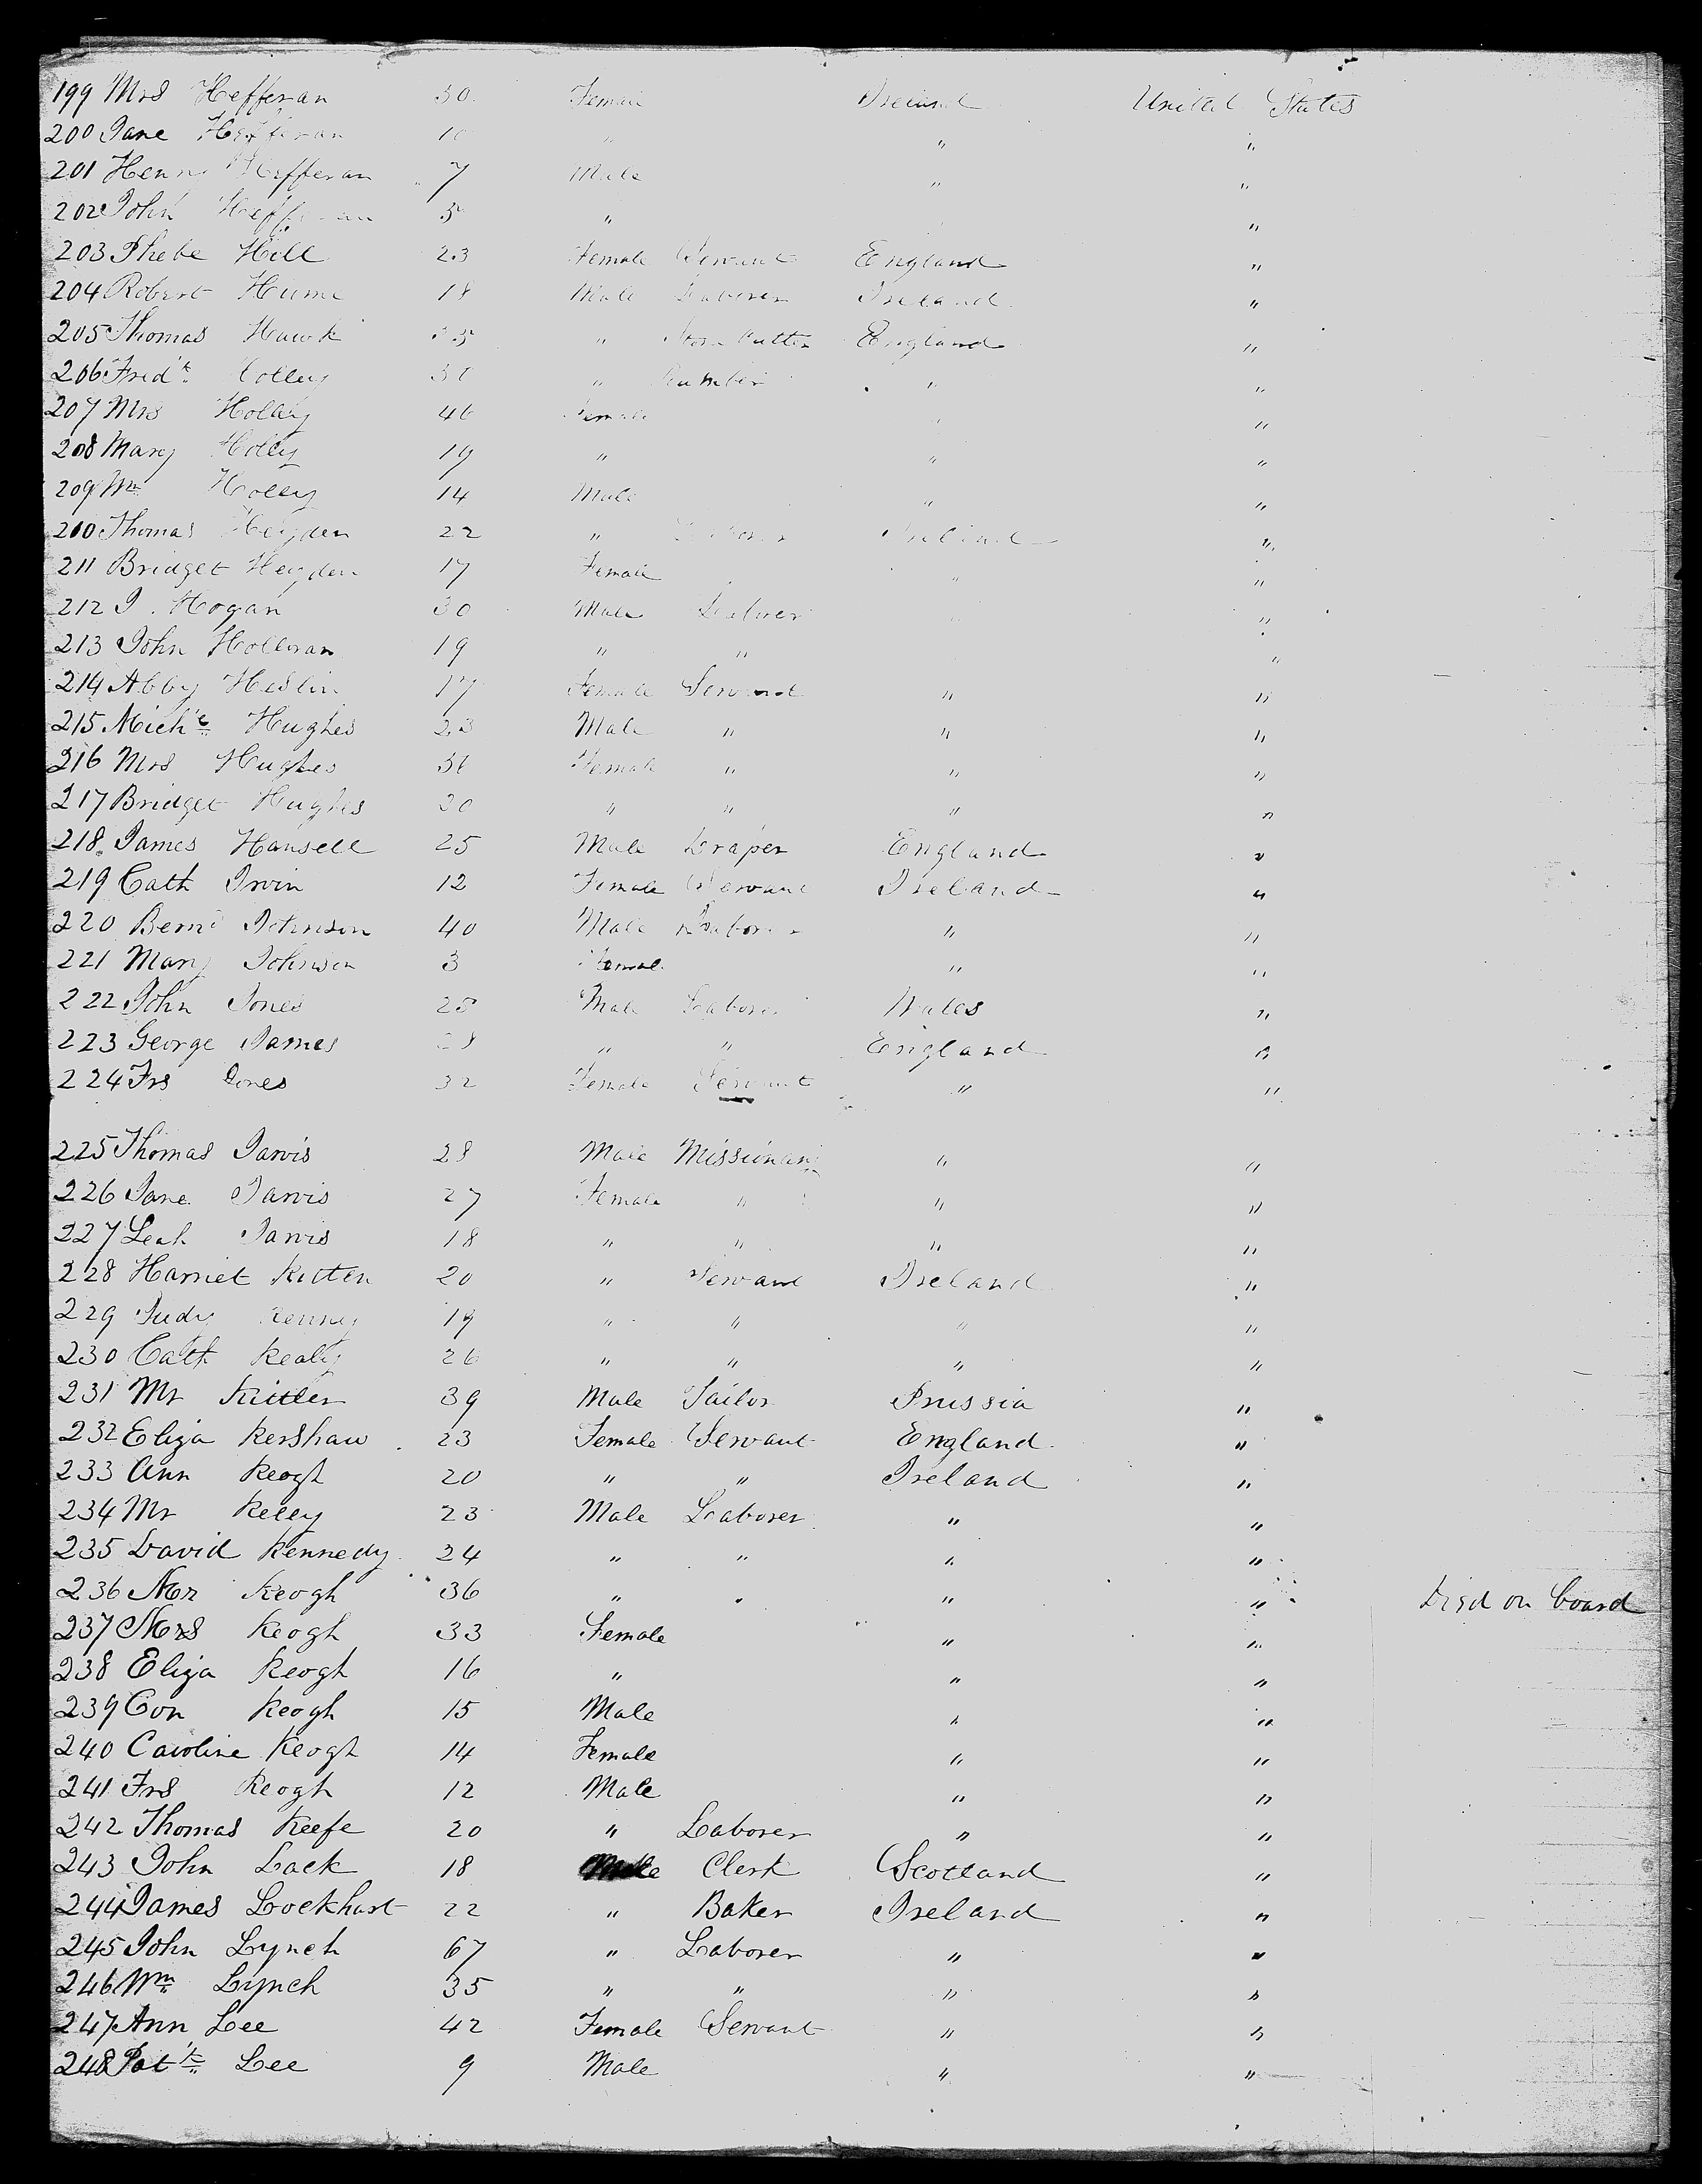 199 Mrs Hefferan 30 Female Ireland United States
200 Jane Hefferan 10 " " "
201 Henry Hefferan 7 Male " "
202 John Hefferan 5 " "
203 Phebe Hill 23 Female Servant England "
204 Robert Hume 18 Male Laborer Ireland "
205 Thomas Hawk " Stone Cutter England "
206 Fredk " Plumber " "
207 Mrs Holley 46 Female " "
208 Mary Holly 19 " " "
209 Wm Holley 14 Male " "
210 Thomas Heyden 22 " Laborer Ireland "
211 Bridget Heyden 17 Female " "
212 J. Hogan 30 Male Laborer " "
213 John Holloran 19 " " "
214 Abby Heslin 17 Female Servant " "
215 Michl Hughes 23 Male " " "
216 Mrs Hughes Female " " "
217 Bridget Hughes 20 " " " "
218 James Hansell 25 Male Draper England "
219 Cath Irvin 12 Female Servant Ireland "
220 Bernd Johnson 40 Male Laborer " "
221 Mary Johnson 3 Female " "
222 John Jones 25 Male Laborer Wales "
223 George James " " England "
224 Frs Jones 32 Female Servant " "
225 Thomas Jarvis 28 Male Missionary " "
226 Jane Jarvis 27 Female " " "
227 Leah Jarvis 18 " " " "
228 Harriet Kitten 20 " Servant Ireland "
229 Judy Kenny 19 " " " "
230 Cath Kealy 26 " " " "
231 Mr Kittler 39 Male Tailor Prussia "
232 Eliza Kershaw 23 Female Servant England "
233 Ann Keogh 20 " " Ireland "
234 Mr Kelly 23 Male Laborer " "
235 David Kennedy 24 " " " "
236 Mr Keogh 36 " " " " Died on board
237 Mrs Keogh 33 Female " "
238 Eliza Keogh 16 " " "
239 Con Keogh 15 Male " "
240 Caroline Keogh 14 Female " "
241 Frs Keogh 12 Male " "
242 Thomas Keefe 20 " Laborer " "
243 John Lack 18 Male Clerk Scotland "
244 James Lockhart 22 " Baker Ireland "
245 John Lynch 67 " Laborer " "
246 Wm Lynch 35 " " " "
247 Ann Lee 42 Female Servant " "
248 Patk Lee 9 Male " "